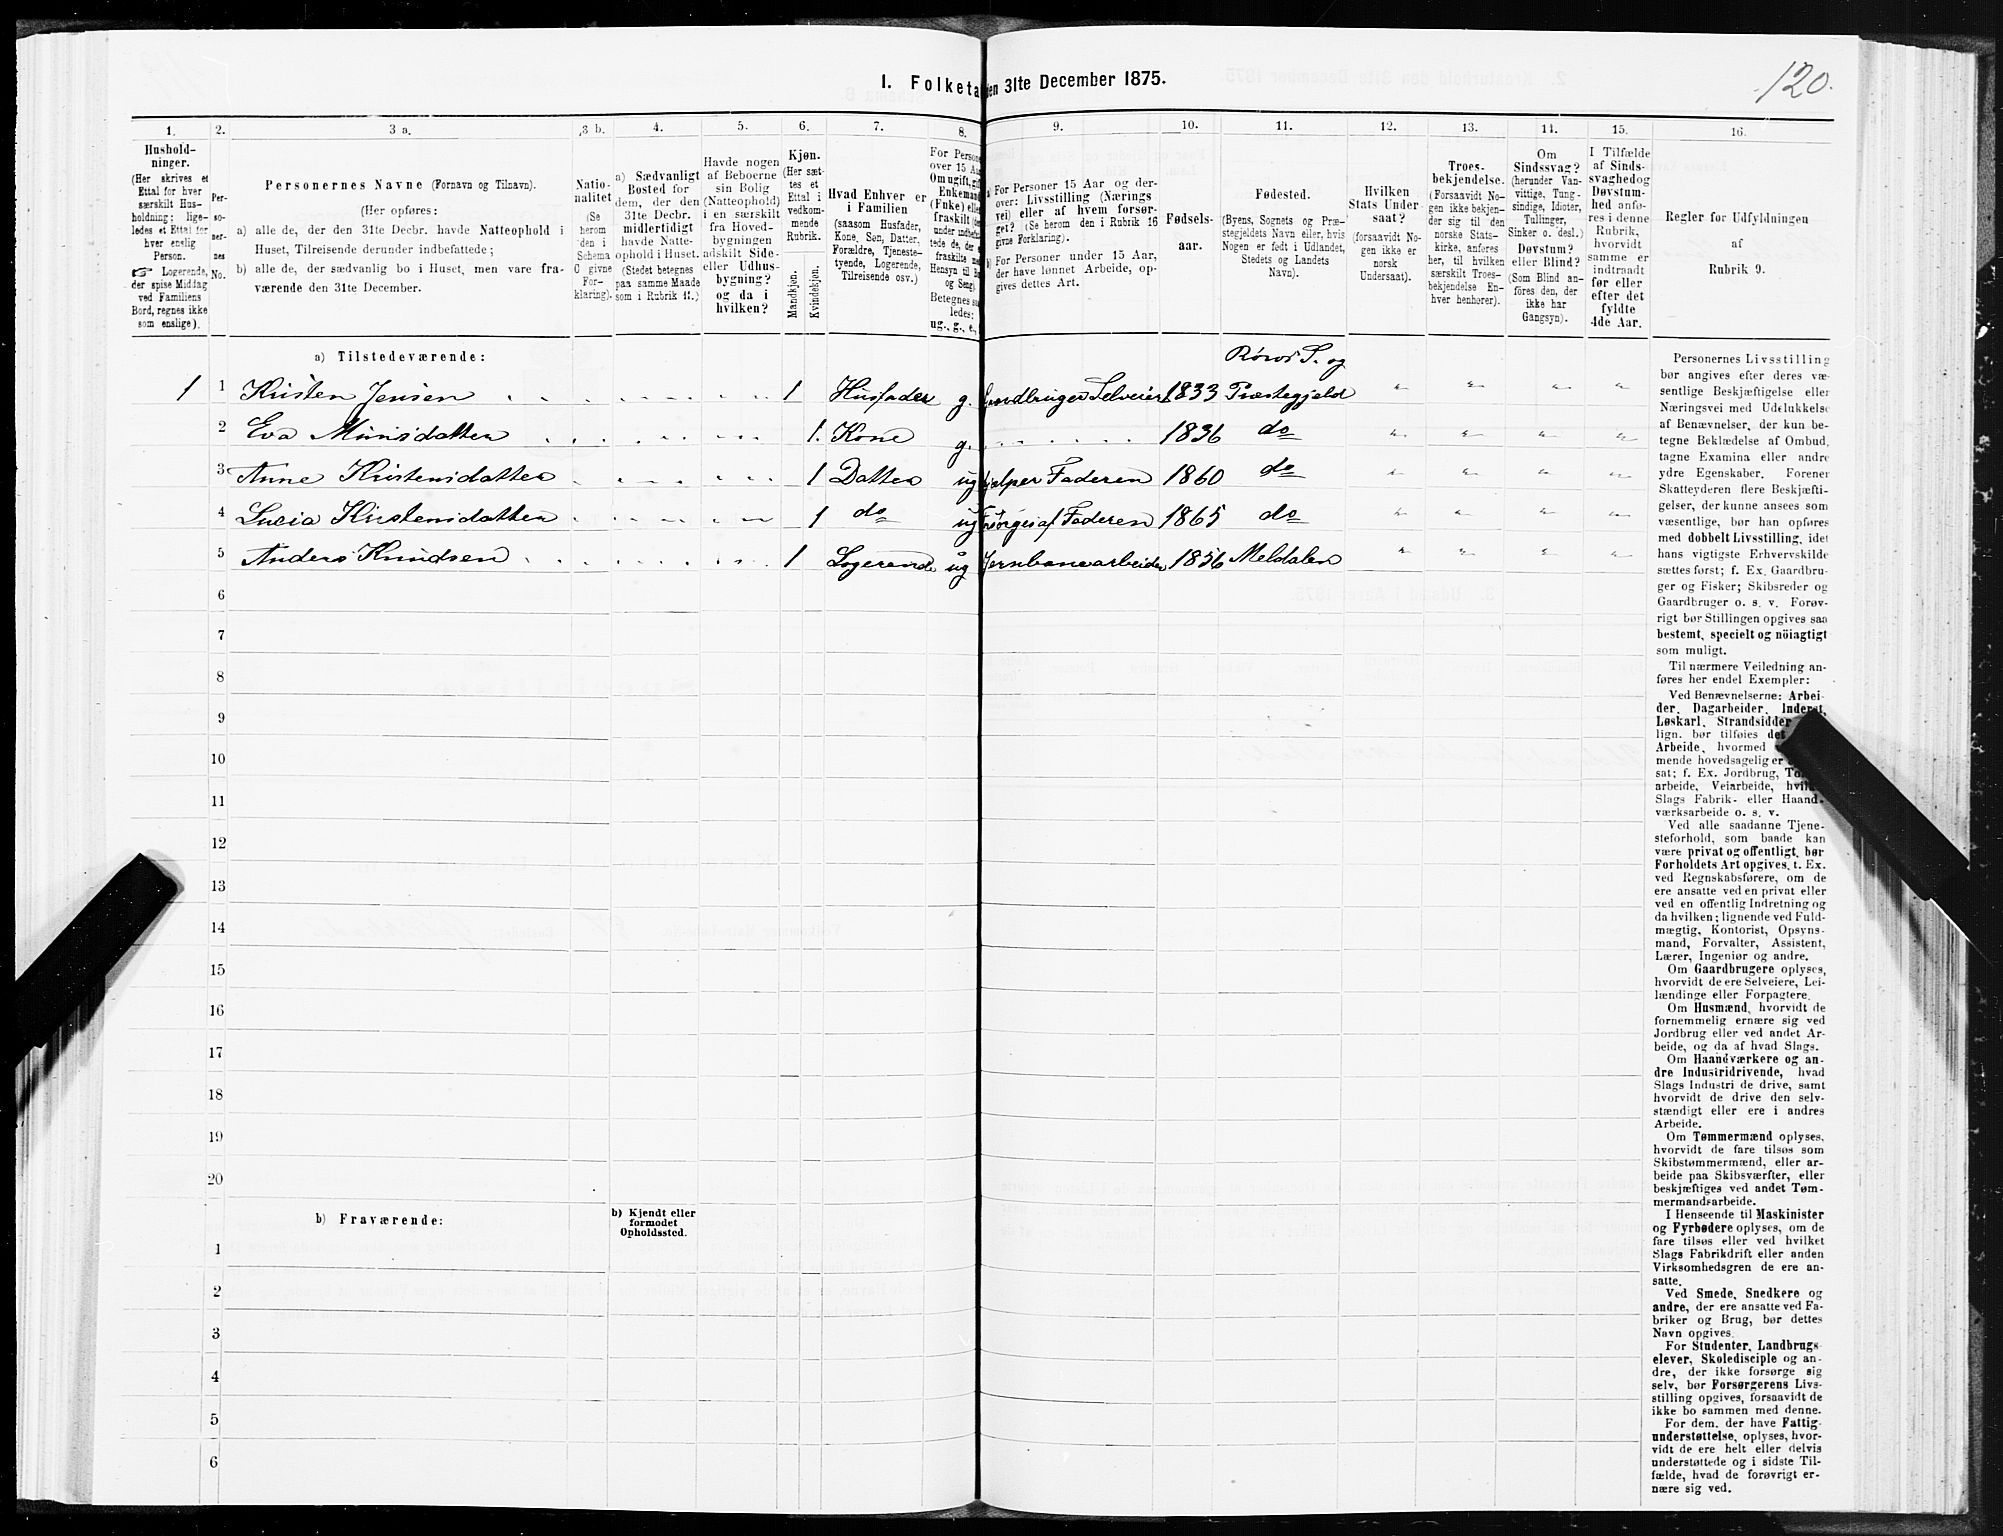 1. Folketæ den 31te December 1875.
120.
1. 2. 3 a. 3 b. 4. 5. 6. 7. 8. 9. 10. 11. 12. 13. 14. 15. 16.
Hushold-
ninger.
(Her skrives et
Ettal for hver
særskilt Hus-
holdning; lige-
ledes et Ettal for
hver enslig
Person.
☞ Logerende,
der spise Middag
ved Familiens
Bord, regnes ikke
som enslige).
Per-
so-
ner-
nes
No.
Personernes Navne (Fornavn og Tilnavn).
(Her opføres:
a) alle de, der den 31te Decbr. havde Natteophold i
Huset, Tilreisende derunder indbefattede;
b) alle de, der sædvanlig bo i Huset, men vare fra-
værende den 31te December.
Natio-
nalitet
(Se
herom
den i
Schema
C givne
For-
klaring).
a) Sædvanligt
Bosted for
dem, der den
31te Decbr.
midlertidigt
havde Natte-
ophold i Huset.
(Stedet betegnes
paa samme Maade
som i Rubrik 11.)
Havde nogen
af Beboerne
sin Bolig
(Natteophold)
i en særskilt
fra Hoved-
bygningen
adskilt Side-
eller Udhus-
bygning?
og da i
hvilken?
Kjøn.
(Her sæt-
tes et
Ettal i
vedkom-
mende
Rubrik.
Mandkjøn.
Kvindekjøn.
Hvad Enhver er
i Familien
(saasom Husfader,
Kone, Søn, Datter,
Forældre, Tjeneste-
tyende, Logerende,
Tilreisende osv.)
For Persone
over 15 Aa
Om ugift, gif
Enkemand
(Enke) elle
fraskilt (som
under indbefat-
tede de, der er
fraskilte med
Hensyn til Bo
og Seng).
Betegnes saa
ledes:
ug., g., e.,
a) For Personer 15 Aar og der-
over: Livsstilling (Nærings
vei) eller af hvem forsør-
get? (Se herom den i Rubrik 16
givne Forklaring).
b) For Personer under 15 Aar,
der have lønnet Arbeide, op-
gives dettes Art.
Fødsels-
aar.
Fødested.
(Byens, Sognets og Præ-
stegjeldets Navn eller, hvis
Nogen er født i Udlandet,
Stedets og Landets
Navn).
Hvilken
Stats Under-
saat?
(forsaavidt No-
gen ikke er
norsk
Undersaat).
Troes-
bekjendelse.
(Forsaavidt No-
gen ikke bekjen-
der sig til den
norske Stats-
kirke, anføres
her, til hvilken
særskilt Troes-
bekjendelse En-
hver henhører).
Om
Sindssvag?
(herunder Van-
vittige, Tung-
sindige, Idioter,
Tullinger,
Sinker o. desl.)
Døvstum?
eller Blind?
(Som Blind an-
føres den, der
ikke har
Gangsyn).
I Tilfælde
af Sinds-
svaghed og
Døvstum-
hed anfø-
res i denne
Rubrik,
hvorvidt
samme er
indtraadt
før eller
efter det
fyldte
4de Aar.
Regler for Udfyldningen
af
Rubrik 9.
a) Tilstedeværende:
Røros S. og
1 1 Kristen Jensen 1 Husfader g. Gaardbruger Selveier 1833 Præstegjeld " " " "
2 Eva Monsdatter 1. Kone g. 1836 do " " " "
3 Anne Kristensdatter 1 Datter ug hjelper Faderen 1860 do " " " "
4 Lucia Kristensdatter 1 do ug Forsørges af Faderen 1865 do " " " "
5 Anders Knudsen 1 Logerende ug Jernbanearbeider 1856 Meldalen " " " "
6
7
8
9
10
11
12
13
14
15
16
17
18
19
20
b) Fraværende:
b) Kjendt eller
formodet
Opholdssted.
1
2
3
4
5
6
Personernes Livsstilling
bør angives efter deres væ-
sentlige Beskjæftigelse eller
Næringsvei med Udelukkelse
af Benævnelser, der kun be-
tegne Beklædelse af Ombud,
tagne Examina eller andre
ydre Egenskaber. Forener
Skatteyderen flere Beskjæfti-
gelser, der kunne ansees som
væsentlige, bør han opføres
med dobbelt Livsstilling, idet
hans vigtigste Erhvervskilde
sættes først; f. Ex. Gaardbru-
ger og Fisker; Skibsreder og
Gaardbruger o. s. v. Forøv-
rigt bør Stillingen opgives saa
bestemt, specielt og nöiagtigt
som muligt.
Til nærmere Veiledning an-
føres her endel Exempler:
Ved Benævnelserne: Arbei-
der, Dagarbeider, Inderst,
Løskarl, Strandsidder
lign. bør tilføies det
Arbeide, hvormed
mende hovedsagelig er
sat; f. Ex. Jordbrug, Tom
arbeide, Veiarbeide, hvil
Slags Fabrik- eller Haand-
værksarbeide o. s. v.
Ved alle saadanne Tjene-
steforhold, som baade kan
være privat og offentligt, bør
Forholdets Art opgives, t. Ex.
ved Regnskabsførere, om de
ere ansatte ved en privat eller
ved en offentlig Indretning og
da hvilken; lignende ved Fuld-
mægtig, Kontorist, Opsyns-
mand, Forvalter, Assistent,
Lærer, Ingeniør og andre.
Om Gaardbrugere oplyses,
hvorvidt de ere Selveiere, Lei-
lændinge eller Forpagtere.
Om Husmænd, hvorvidt de
fornemmelig ernære sig ved
Jordbrug eller ved andet Ar-
beide, og da af hvad Slags.
Om Haandværkere og an-
dre Industridrivende, hvad
Slags Industri de drive, samt
hvorvidt de drive den selv-
stændigt eller ere i andres
Arbeide.
Om Tømmermænd oplyses,
hvorvidt de fare tilsøs som
Skibstømmermænd, eller ar-
beide paa Skibsværfter, eller
beskjæftiges ved andet Tøm-
mermandsarbeide.
I Henseende til Maskinister
og Fyrbødere oplyses, om de
fare tilsøs eller ved hvilket
Slags Fabrikdrift eller anden
Virksomhedsgren de ere an-
satte.
Ved Smede, Snedkere og
andre, der ere ansatte ved Fa-
briker og Brug, bør dettes
Navn opgives.
For Studenter, Landbrugs-
elever, Skoledisciple og an-
dre, der ikke forsørge sig
selv, bør Forsørgerens Livs-
stilling opgives, forsaavidt de
ikke bo sammen med denne.
For dem, der have Fattig-
understøttelse, oplyses, hvor-
vidt de ere helt eller delvis
understøttede og i sidste Til-
fælde, hvad de forøvrigt er-
nære sig ved.